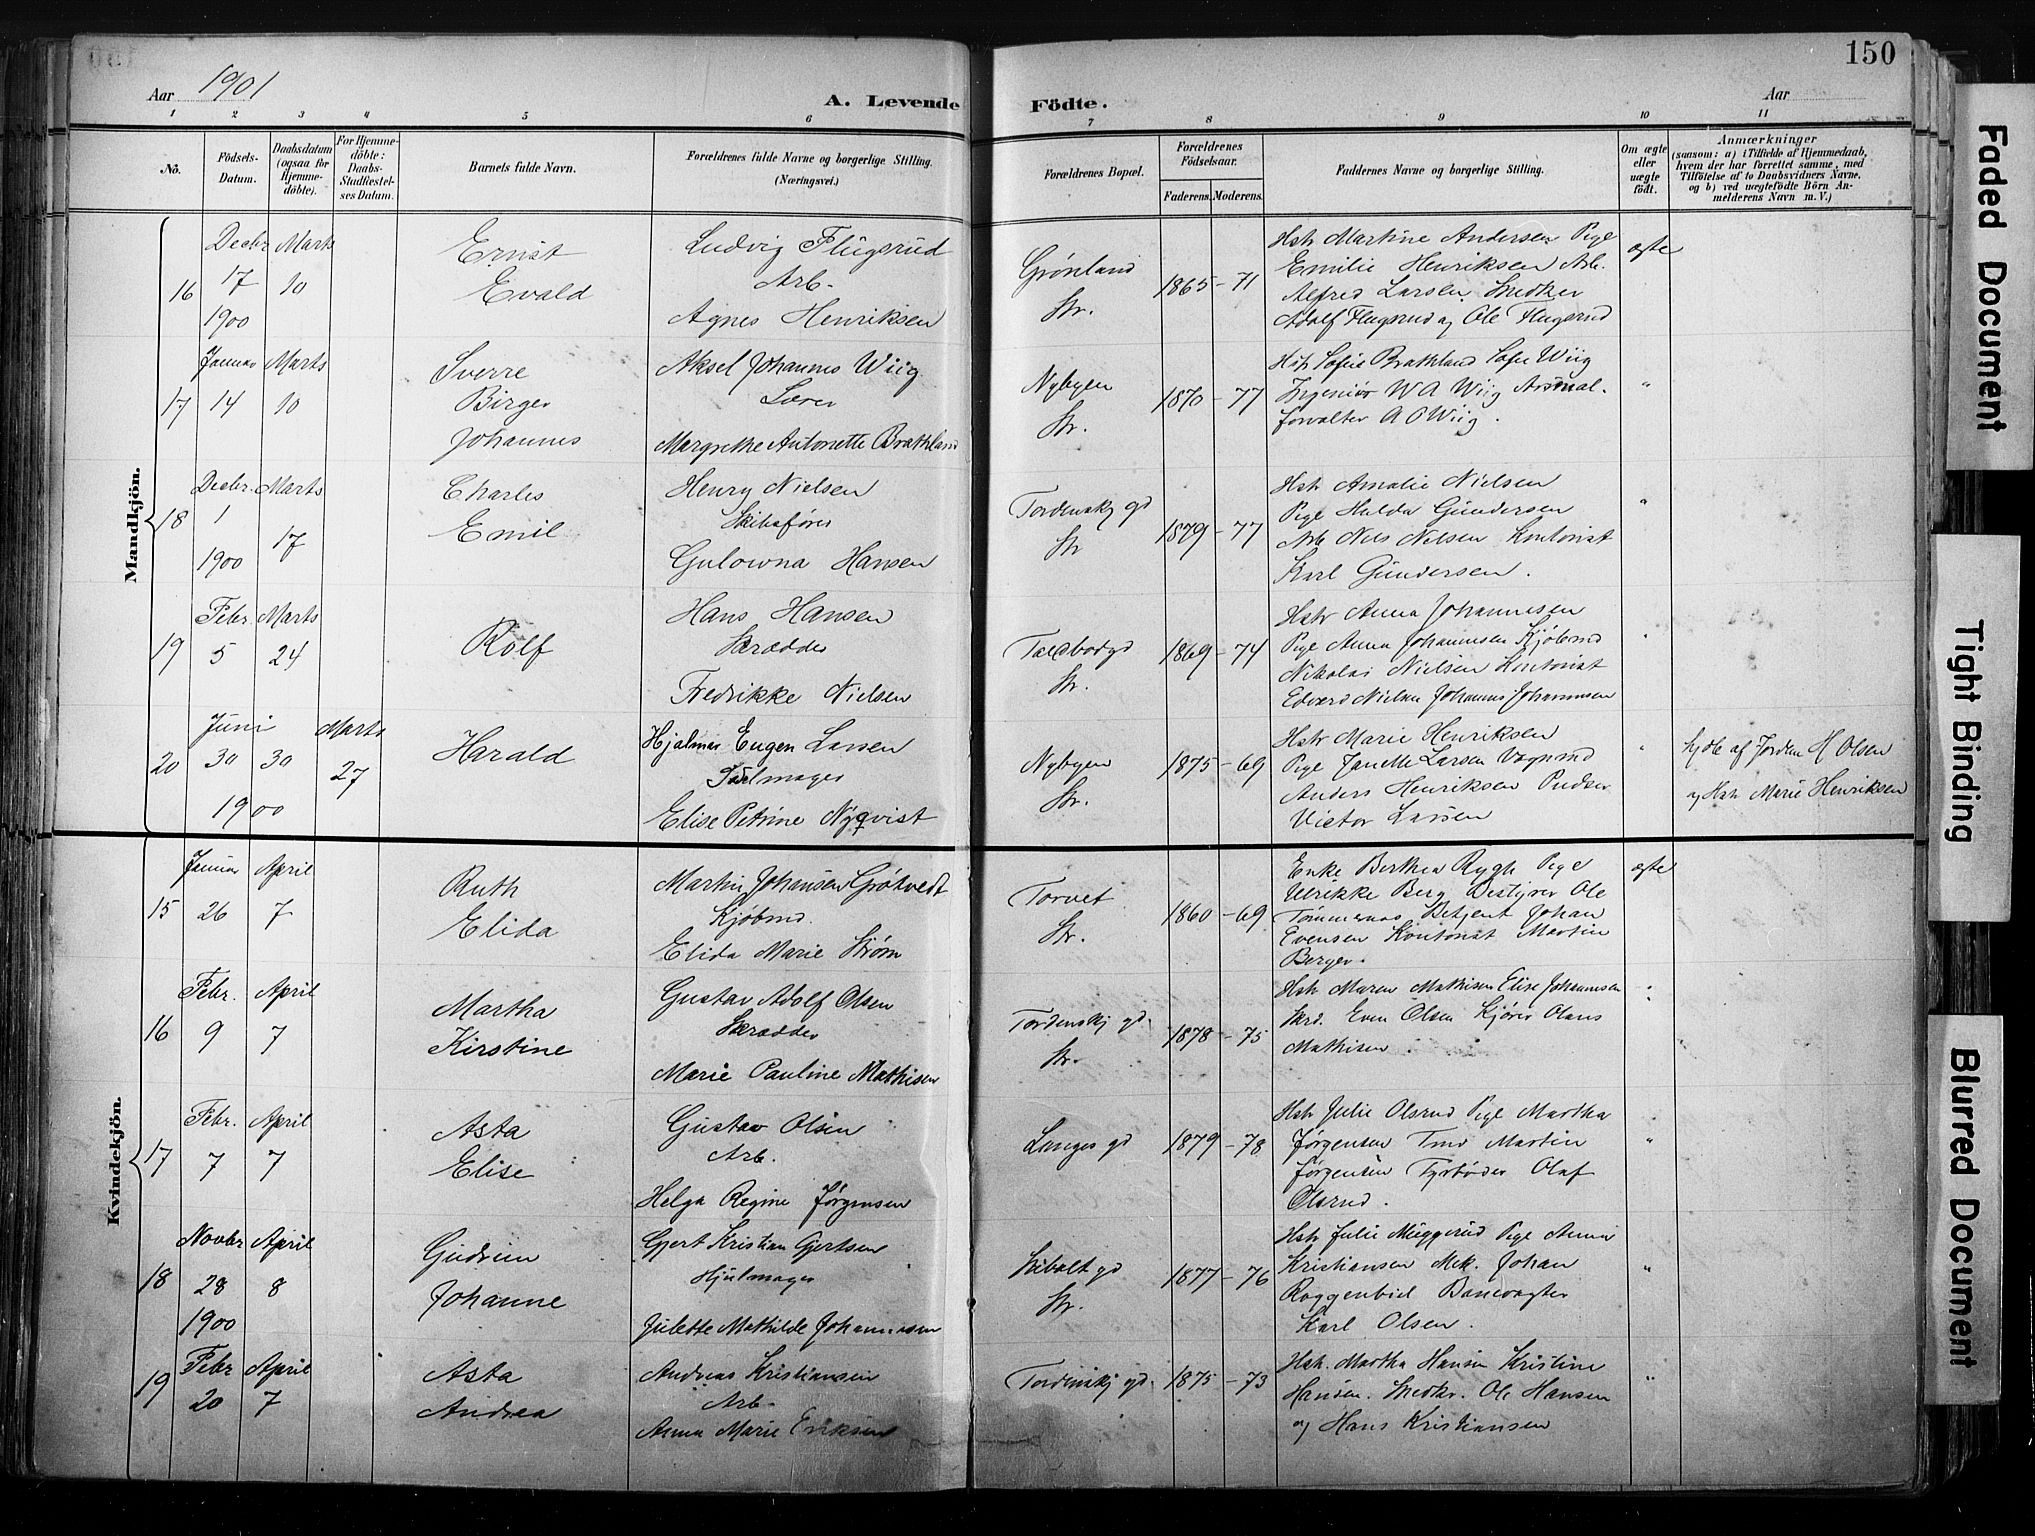 150
Aar 1901
A. Levende Födte.
Aar
1 2 3 4 5 6 7 8 9 10 11
No.
Födsels-Datum.
Daabsdatum (ogsaa for Hjemme-döbte).
For Hjemme-döbte: Daabs-Stadfestel-ses Datum.
Barnets fulde Navn.
Forældrenes fulde Navne og borgerlige Stilling. (Næringsvei.)
Forældrenes Bopæl.
Forældrenes Födselsaar.
Faderens. Moderens.
Faddernes Navne og borgerlige Stilling.
Om ægte eller uægte födt.
Anmærkninger
(saasom: a) i Tilfælde af Hjemmedaab, hvem der har forrettet samme, med Tilföielse af to Daabsvidners Navne, og b) ved uægtefödte Börn An-melderens Navn m. V.)
Mandkjön.
16
Decbr 17 1900
Marts 10
Ernst
Evald
Ludvig Flugsrud
Arb.
Agnes Henriksen
Grønland
Str.
1865 - 71
Hstr Martine Andersen Pige
Emilie Henriksen Arb.
Alfred Larsen Snedker
Adolf Flugsrud og Ole Flugsrud
ægte
17
Januar 14
Marts 10
Sverre
Birger
Johannes
Aksel Johannes Wiig
Lærer
Margrethe Antonette Brathland
Nybyen
Str.
1870 - 77
Hstr Sofie Brathland Sofie Wiig
Ingeniør W A Wiig Arsenal-
forvalter A O Wiig.
"
18
Decbr. 1 1900
Marts 17
Charles
Emil
Henry Nielsen
Skibsfører
Gulowna Hansen
Tordenskj gd
Str
1879 - 77
Hstr Amalie Nielsen
Pige Hulda Gundersen
Arb Nils Nilsen Kontorist
Karl Gundersen.
"
19
Febr. 5
Marts 24
Rolf
Hans Hansen
Skrædder
Fredrikke Nielsen
Toldbodgd
Str.
1869 - 74
Hstr Anna Johannesen
Pige Anna Johannesen Kjøbmd
Nikolai Nielsen Kontorist
Edvard Nielsen Johannes Johannesen
"
20
Juni 30 30
1900
Marts 27
Harald
Hjalmar Eugen Larsen
Seilmager
Elise Petrine Nyqvist
Nybyen
Str.
1875 - 69
Hstr Marie Henriksen
Pige Janette Larsen Vognmd
Anders Henriksen Pudser
Victor Larsen
"
hjdb af Jordm H Olsen
og Hstr Marie Henriksen
Kvindekjön.
15
Januar 26
April 7
Ruth
Elida
Martin Johansen Grøtvedt
Kjøbmd.
Elida Marie Strøm
Torvet
Str.
1860 - 69
Enke Berthea Rygh Pige
Ulrikke Berg Bestyrer Ole
Tømmernæs Betjent Johan
Evensen Kontorist Martin
Berger.
ægte
16
Febr. 9
April 7
Martha
Kirstine
Gustav Adolf Olsen
Skrædder
Marie Pauline Mathisen
Tordenskj gd.
Str.
1878 - 75
Hstr Maren Mathisen Elise Johannesen
Skrd. Even Olsen Kjører Olaus
Mathisen.
"
17
Febr. 7
April 7
Asta
Elise
Gustav Olsen
Arb.
Helga Regine Jørgensen
Langes gd
1879 - 78
Hstr Julie Olsrud Pige Martha
Jørgensen Tmd Martin
Jørgensen Fyrbøder Olaf
Olsrud.
"
18
Novbr 28 1900
April 8
Gudrun
Johanne
Gjert Kristian Gjertsen
Hjulmager
Julette Mathilde Johannessen
Sibalt gd
Str.
1877 - 76
Hstr Julie Muggerud Pige Anna
Kristiansen Mek. Johan
Roggenbid Banevogter
Karl Olsen.
"
19
Febr 20
April 7
Asta
Andrea
Andreas Kristiansen
Arb.
Anna Marie Eriksen
Tordenskj gd.
1875 - 73
Hstr. Martha Hansen Kristine
Hansen. Snedkr. Ole Hansen
og Hans Kristiansen
"
Faded Document
Tight Binding
Blurred Document